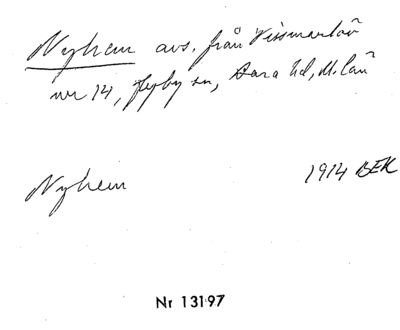 Nyhem avs. från Vissmarlöv
nr 14, Hyby sn, Bara hd, M. län
Nyhem
1914 BEK
Nr 13197